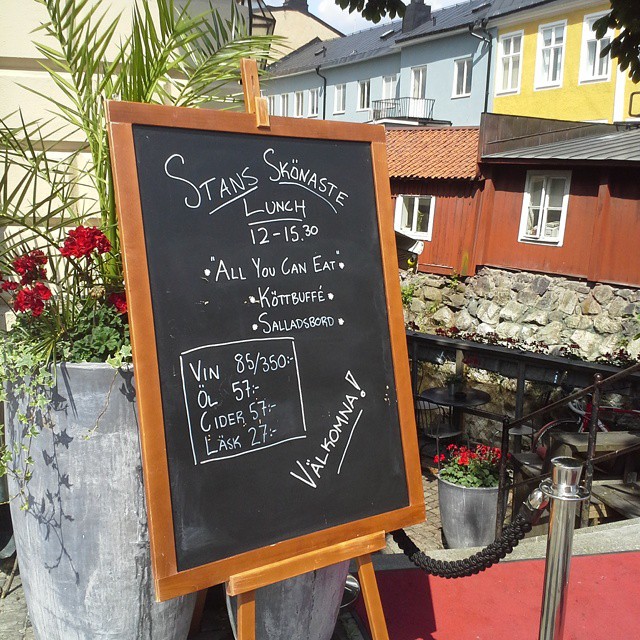 STANS SKÖNASTE
LUNCH
12-15.30
•"ALL YOU CAN EAT"•
•KÖTTBUFFÉ•
•SALLADSBORD•
VIN 85/350:-
ÖL 57:-
CIDER 57:-
LÄSK 27:-
VÄLKOMNA!